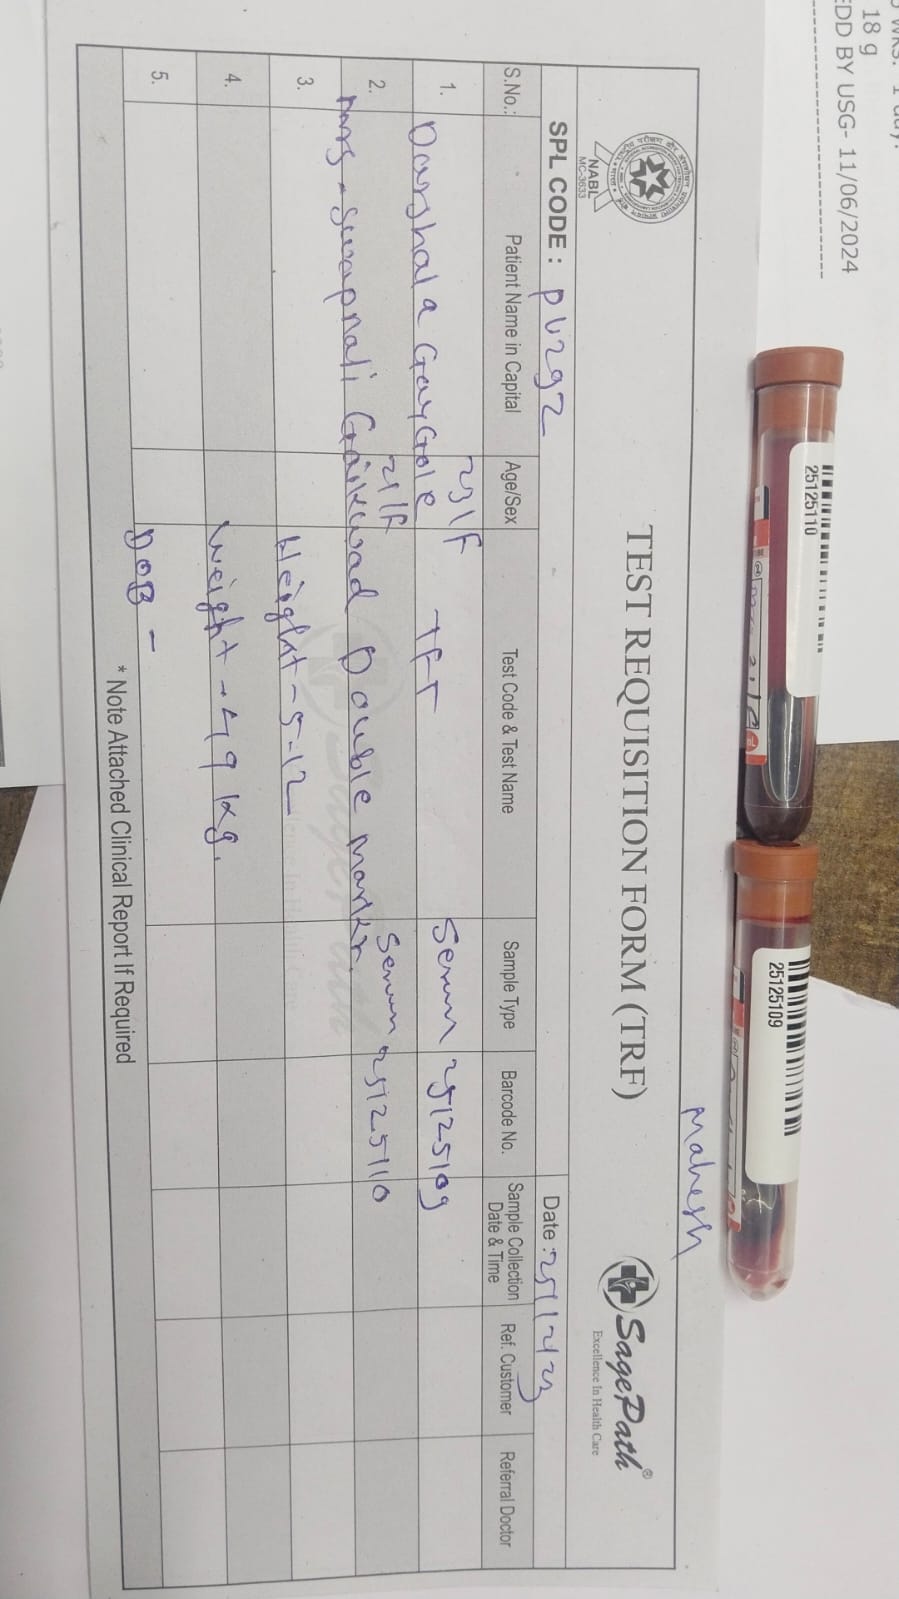 18 g
EDD BY USG- 11/06/2024
25125110
25125109
Mahesh
NABL
MC-3633
TEST REQUISITION FORM (TRF)
SagePath®
Excellence In Health Care
SPL CODE : PU292
Date : 25/12/23
S.No.: Patient Name in Capital Age/Sex Test Code & Test Name Sample Type Barcode No. Sample Collection Date & Time Ref. Customer Referral Doctor
1. Darshala GayGole 23/F TFT Serum 25125109
2. mrs - Swapnali Gaikwad 21/F Double marker Serum 25125110
3. Height - 5-12
4. Weight - 49 kg.
5. DOB -
* Note Attached Clinical Report If Required